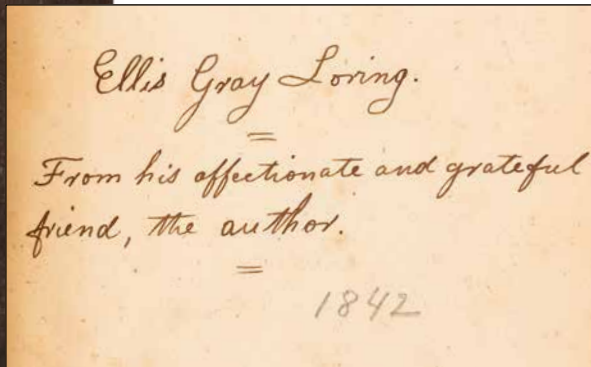 Ellis Gray Loring.
From his affectionate and grateful
friend, the author.
1842